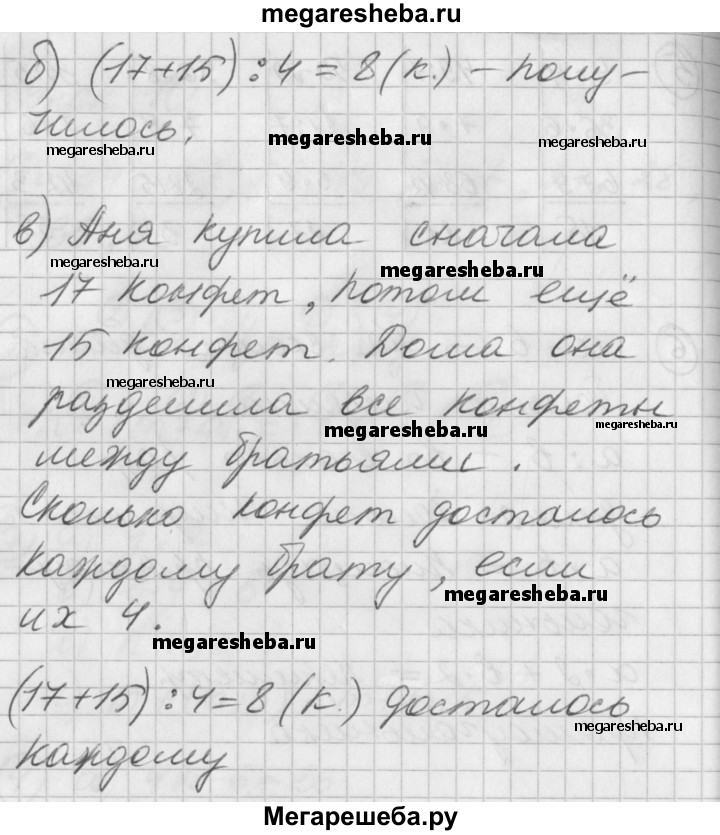 megaresheba.ru
б) (17+15):4=8(к.) – полу-
чилось.
megaresheba.ru
megaresheba.ru
megaresheba.ru
в) Аня купила сначала
megaresheba.ru
megaresheba.ru
17 конфет, потом ещё
15 конфет. Дома она
megaresheba.ru
разделила все конфеты
megaresheba.ru
megaresheba.ru
между братьями.
Сколько конфет досталось
каждому брату, если
megaresheba.ru
их 4.
megaresheba.ru
(17+15):4=8(к.) досталось
megaresheba.ru
каждому
Мегарешеба.ру